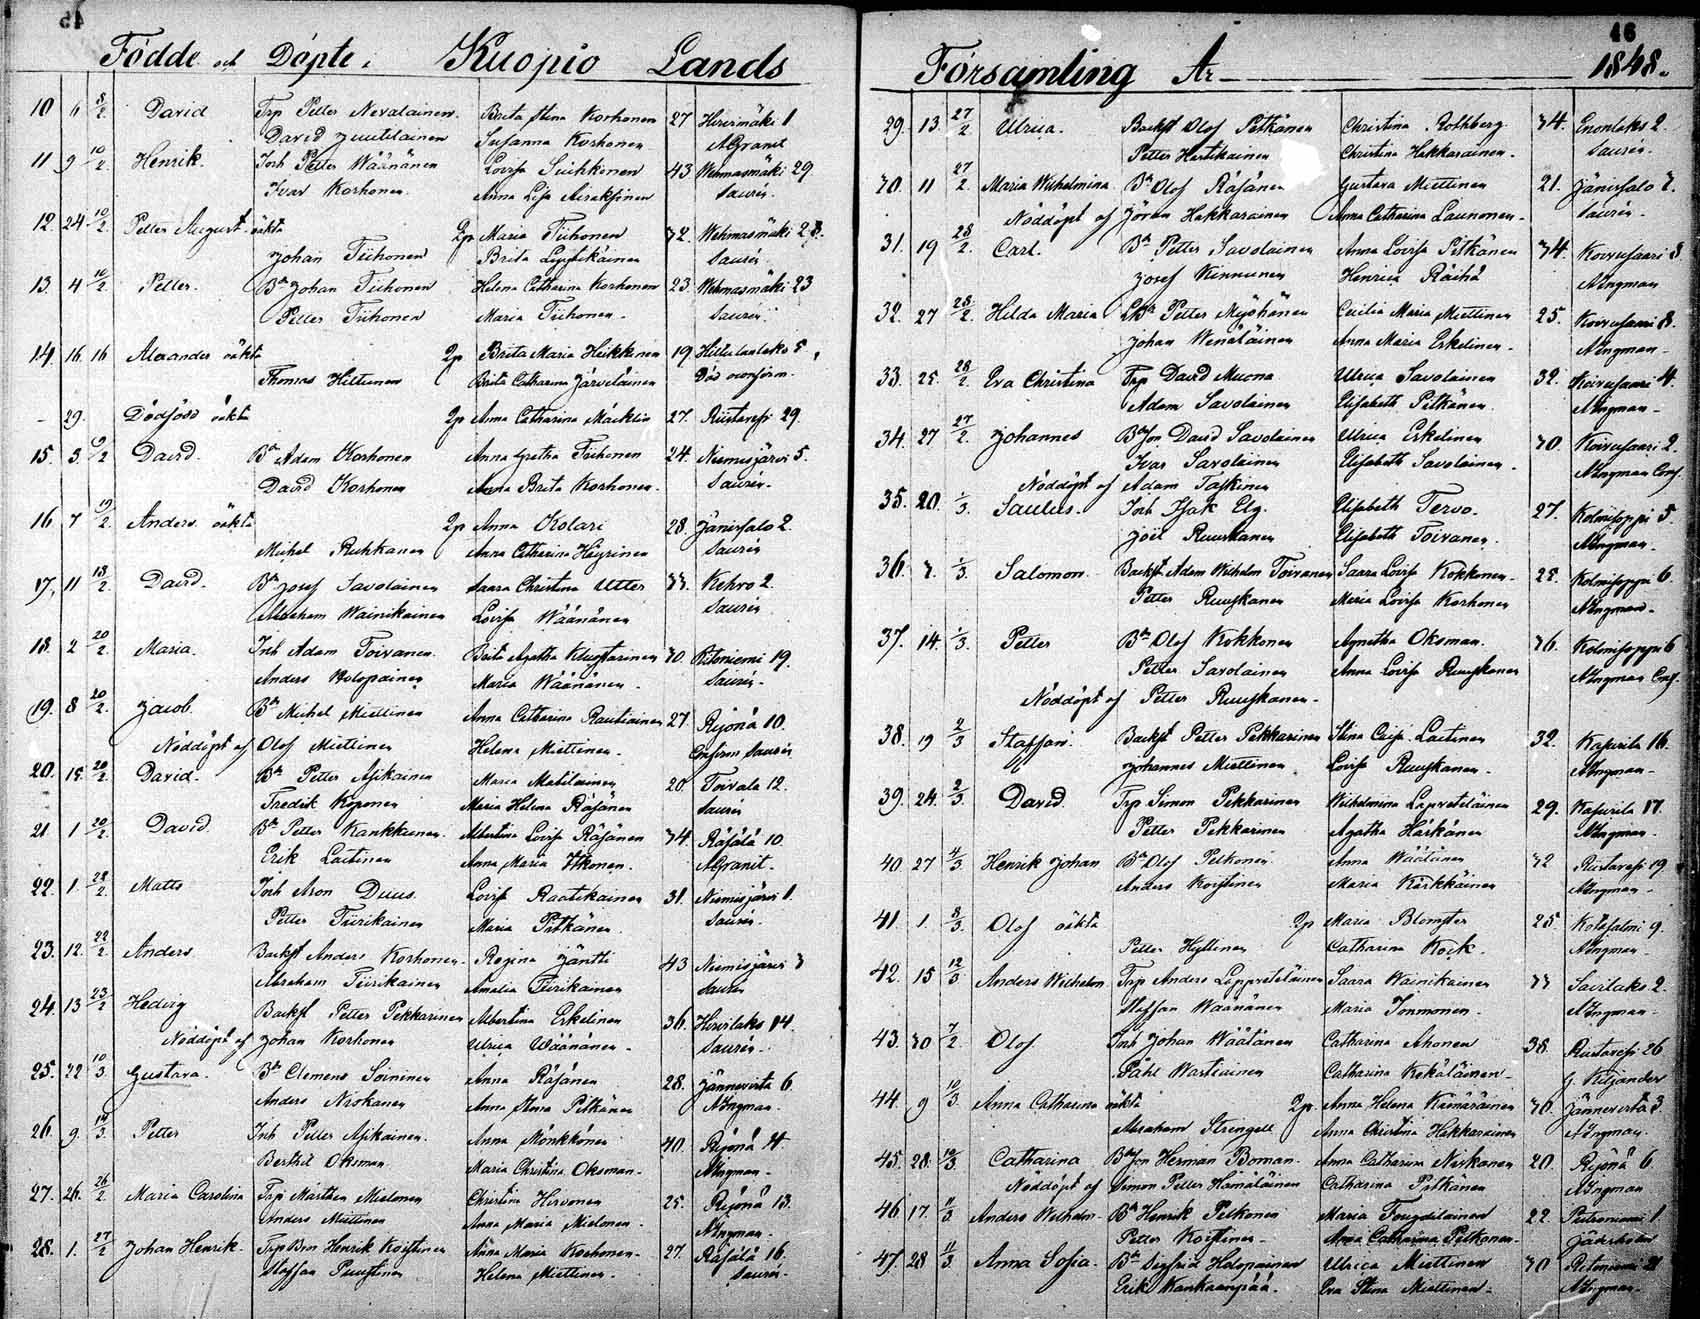 45
Födde och Döpte i Kuopio Lands
10 6 8/2 David Trp Petter Nevalainen Brita Stina Korhonen 27 Hirvimäki 1
David Juutilainen Susanna Korhonen AGranit
11 9 10/2 Henrik Inh Petter Wäänänen Lovisa Suihkonen 43 Wehmasmäki 29
Ivar Korhonen Anna Lisa Airaksinen Saurén
12. 24 10/2 Petter August oäkta Pp Maria Tiihonen 32. Wehmasmäki 23.
Johan Tiihonen Brita Saurén
13. 4 10/2 Petter. Bn Johan Tiihonen Helena Catharina Korhonen 23 Wehmasmäki 23
Petter Tiihonen Maria Tiihonen Saurén
14 16. 16 Alexander oäkta Pp Brita Maria Heikkinen 19 5
Thomas Hiltunen Brita Catharina Järveläinen Död
- 29. Dödfödd oäkta Pp Anna Catharina Mäcklin 27. Riistavesi 29.
15. 3. David. Bn Adam Korhonen Anna Gretha Tiihonen 24. Niemisjärvi 5.
David Korhonen Anna Brita Korhonen. Saurén
16. 7 Anders oäkta Pp Anna Kolari 28. Jänissalo 2.
Michel Ruhkanen Anna Catharina Häyrinen Saurén
17. 11 13/2 David. Bn Josef Savolainen Saara Christina Utter 33. Kehvo 2.
Abraham Wainikainen Lovisa Wäänänen Saurén
18. 2 20/2 Maria. Inh Adam Toivanen Brita Agatha 30. Ritoniemi 19.
Anders Holopainen Maria Wäänänen. Saurén
19. 8 20/2 Jacob. Bn Michel Miettinen Anna Catharina Rautiainen 27. Ryönä 10.
Nöddöpt af Olof Miettinen Helena Miettinen. Saurén
20. 15. 20/2 David. Bn Petter Asikainen Maria Matilainen 20. Toivala 12.
Fredrik Koponen Maria Helena Räsänen Saurén
21 1 20/2 David. Bn Petter Kankkunen Albertina Lovisa Räsänen 34. Räsälä 10.
Erik Laitinen Anna Maria Itkonen. AGranit.
22. 1. Matts Inh Aron Duus. Lovisa Raatikainen 31. Niemisjärvi 1.
Petter Tiirikainen Maria Pitkänen Saurén
23. 12 22/2 Anders Backst Anders Korhonen Regina Jäntti 43 Niemisjärvi 3
Abraham Tiirikainen Amalia Tiirikainen Saurén
24. 13 23/2 Hedvig Backst Petter Pekkarinen Albertina Erkelinen 36. Hirvilaks 14.
Nöddöpt af Johan Korhonen Ulrica Wäänänen. Saurén
25. 22 10/3 Gustava. Bn Clemens Soininen Anna Räsänen 28. Jännevirta 6.
Anders Nrokanen Anna Stina Pitkänen AIngman.
26. 9. 14/3 Petter Inh Petter Asikainen. Anna Mönkkönen 40. Ryönä 4
Berthil Oksman Maria Christina Oksman. AIngman.
27. 26. 26/2 Maria Carolina Trp Mårthen Mielonen Christina Hirvonen 25. Ryönä 13.
Anders Miettinen Anna Maria Mielonen. AIngman.
28. 1. 27/2 Johan Henrik. Trp Bror Henrik Koistinen Anna Maria Korhonen. 27. Räsälä 16.
Staffan Puustinen Helena Miettinen. Saurén.
46
Församling År 1848.
29. 13. 27/2 Ulrica. Backst Olof Pitkänen Christina Rothberg 34. Enonlaks 2.
Petter Hartikainen Christina Hakkarainen. Saurén.
30. 11 27/2 Maria Wilhelmina Bn Olof Räsänen Gustava Miettinen 21. Jänissalo 7.
Nöddöpt af Jöran Hakkarainen Anna Catharina Launonen. Saurén.
31. 19 28/2 Carl. Bn Petter Savolainen Anna Lovisa Pitkänen 34. Koivusaari 8
Josef Kinnunen Henrica Räihä AIngman
32. 27 28/2 Hilda Maria Petter Myöhänen Cecilia Maria Miettinen 25. Koivusaari 8.
Johan Wenäläinen Anna Maria Erkelinen. AIngman
33. 25. 28/2 Eva Christina Trp David Muona Ulrica Savolainen 32. Koivusaari 4.
Adam Savolainen Elisabeth Pitkänen AIngman
34. 27 27/2 Johannes BdeSon David Savolainen Ulrica Erkelinen 30 Koivusaari 2.
Ivar Savolainen Elisabeth Savolainen. AIngman Conf.
Nöddöpt af Adam Taskinen
35. 20. 1/3 Saulus. Inh Isak Elg. Elisabeth Tervo. 27. Kolmisoppi 5.
Joel Ruuskanen Elisabeth Toivanen. AIngman.
36. 7. 1/3 Salomon Backst Adam Wilhelm Toivanen Saara Lovisa Kokkonen. 25. Kolmisoppi 6
Petter Ruuskanen Maria Lovisa Korhonen AIngman.
37. 14. 1/3 Petter Bn Olof Kokkonen Agnetha Oksman. 36. Kolmisoppi 6
Petter Savolainen Anna Lovisa Ruuskanen AIngman Conf.
Nöddöpt af Petter Ruuskanen.
38. 19 2/3 Staffan. Backst Petter Pekkarinen Stina Caisa Laitinen 32. Kasurila 16.
Johannes Miettinen Lovisa Ruuskanen. AIngman.
39. 24. 2/3 David. Trp Simon Pekkarinen Wilhelmina Lappeteläinen 29. Kasurila 17.
Petter Pekkarinen Agatha Härkänen AIngman.
40 27 4/3 Henrik Johan Bn Olof Pelkonen Anna Wäätänen 32 Riistavesi 19
Anders Koistinen Maria Kärkkäinen AIngman
41. 1. 8/3 Olof oäkta Pp Maria Blomster 25. Kotasalmi 9.
Petter Hyttinen Catharina Kock. AIngman
42. 15 12/3 Anders Wilhelm Trp Anders Lappveteläinen Saara Wainikainen 33 Savilaks 2.
Staffan Wäänänen Maria Immonen. AIngman
43. 30 7/2 Olof Inh Johan Wäätänen Catharina Ahonen 38. Riistavesi 26
Påhl Wartiainen Catharina Kekäläinen. G. Kiljander
44. 9 10/3 Anna Catharina oäkta Pp. Anna Helena Kämäräinen 36. Jännevirta 3.
Abraham Strengell Anna Christina Hakkarainen AIngman.
45. 28. 10/3 Catharina BdeSon Herman Boman. Anna Catharina Niskanen 20. Ryönä 6.
Nöddöpt af Simon Petter Hämäläinen Catharina Pitkänen AIngman
46 17. 11/3. Anders Wilhelm. Bn Henrik Pelkonen Maria Fougdilainen 22. Puutoniemi 1
Petter Koistinen. Anna Catharina Pelkonen.
47. 28 11/3. Anna Sofia. Bn Sigfrid Holopainen Ulrica Miettinen 30 Ritoniemi 21
Erik Kankaanpää. Eva Stina Miettinen. AIngman.